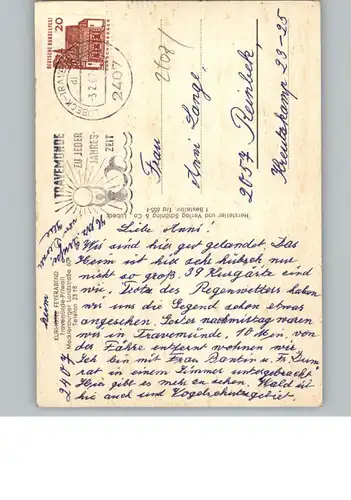 DEUTSCHE BUNDESPOST
20
2407
TRAVEMÜNDE
ZU JEDER
JAHRES-
ZEIT
Frau
Anni Lange,
2057 Reinbek,
Kreutzkamp 23-25
Hersteller und Verlag Schöning & Co., Lübeck
Liebe Anni!
Wir sind hier gut gelandet. Das
Heim ist hier sehr hübsch nur
nicht so groß. 39 Kurgäste sind
wir. Trotz des Regenwetters haben
wir uns die Gegend schon etwas
angesehen. Gestern nachmittag waren
wir in Travemünde, 10 Min. von
der Fähre entfernt wohnen wir.
Ich bin mit Frau Bantin u. Fr.
rat in einem Zimmer untergebracht
Hier gibt es mehr zu sehen. Wald ist
hier auch und Vogelschutzgebiet.
FEIERABEND
Travemünde-Priwall
Mecklenburger Landstraße
Telefon
2407